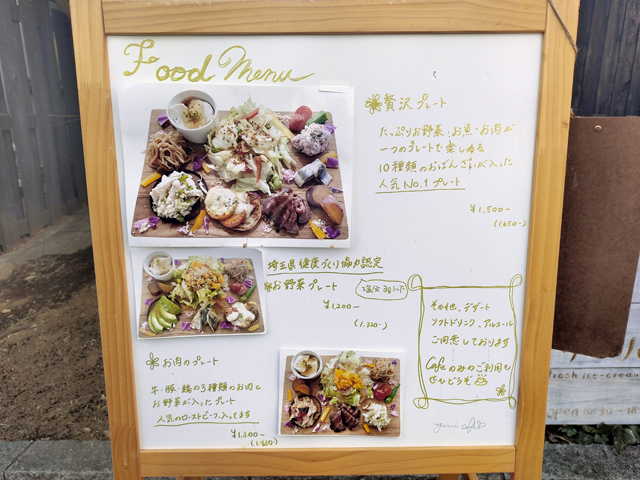 Food Menu
贅沢プレート
たっぷりお野菜・お魚・お肉が
一つのプレートで楽しめる
10種類のおばんざいが入った
人気No.1プレート
¥1,500-
(1,650-)
埼玉県健康づくり協力認定
お野菜プレート
塩分3g以下
¥1,200-
(1,320-)
お肉のプレート
牛・豚・鶏の3種類のお肉と
お野菜が入ったプレート
人気のローストビーフ入ってます
¥1,300-
その他、デザート
ソフトドリンク、アルコール
ご用意しております
Cafeのみのご利用も
ぜひどうぞ
fresh ice-cream
open